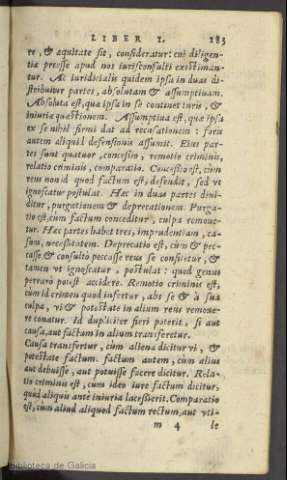 LIBER I. 183
re, & aequitate sit, consideratur: cui diligen-
tiae praeesse apud nos iurisconsulti existiman-
tur. Ac iuridicialis quidem ipsa in duas di-
stribuitur partes, absolutam & assumptivam.
Absoluta est, quae ipsa in se continet iuris, &
iniuriae quaestionem. Assumptiva est, quae ipsa
ex se nihil firmi dat ad recusationem: foris
autem aliquid defensionis assumit. Eius par-
tes sunt quatuor, concessio, remotio criminis,
relatio criminis, comparatio. Concessio est, cum
reus non id quod factum est, defendit, sed ut
ignoscatur postulat. Haec in duas partes divi-
ditur, purgationem & deprecationem. Purga-
tio est, cum factum conceditur, culpa remove-
tur. Haec partes habet tres, imprudentiam, ca-
sum, necessitatem. Deprecatio est, cùm & pec-
casse & consulto peccasse reus se confitetur, &
tamen ut ignoscatur, postulat: quod genus
perraro potest accidere. Remotio criminis est,
cùm id crimen quod infertur, abs se & à sua
culpa, vi & potestate in alium reus remove-
re conatur. Id dupliciter fieri poterit, si aut
causa, aut factum in alium transferetur.
Causa transfertur, cùm aliena dicitur vi, &
potestate factum. factum autem, cùm alius
aut debuisse, aut potuisse facere dicitur. Rela-
tio criminis est, cum ideo iure factum dicitur,
quòd aliquis ante iniuria lacessierit. Comparatio
est, cum aliud aliquod factum rectum, aut uti-
m 4 le
Biblioteca de Galicia